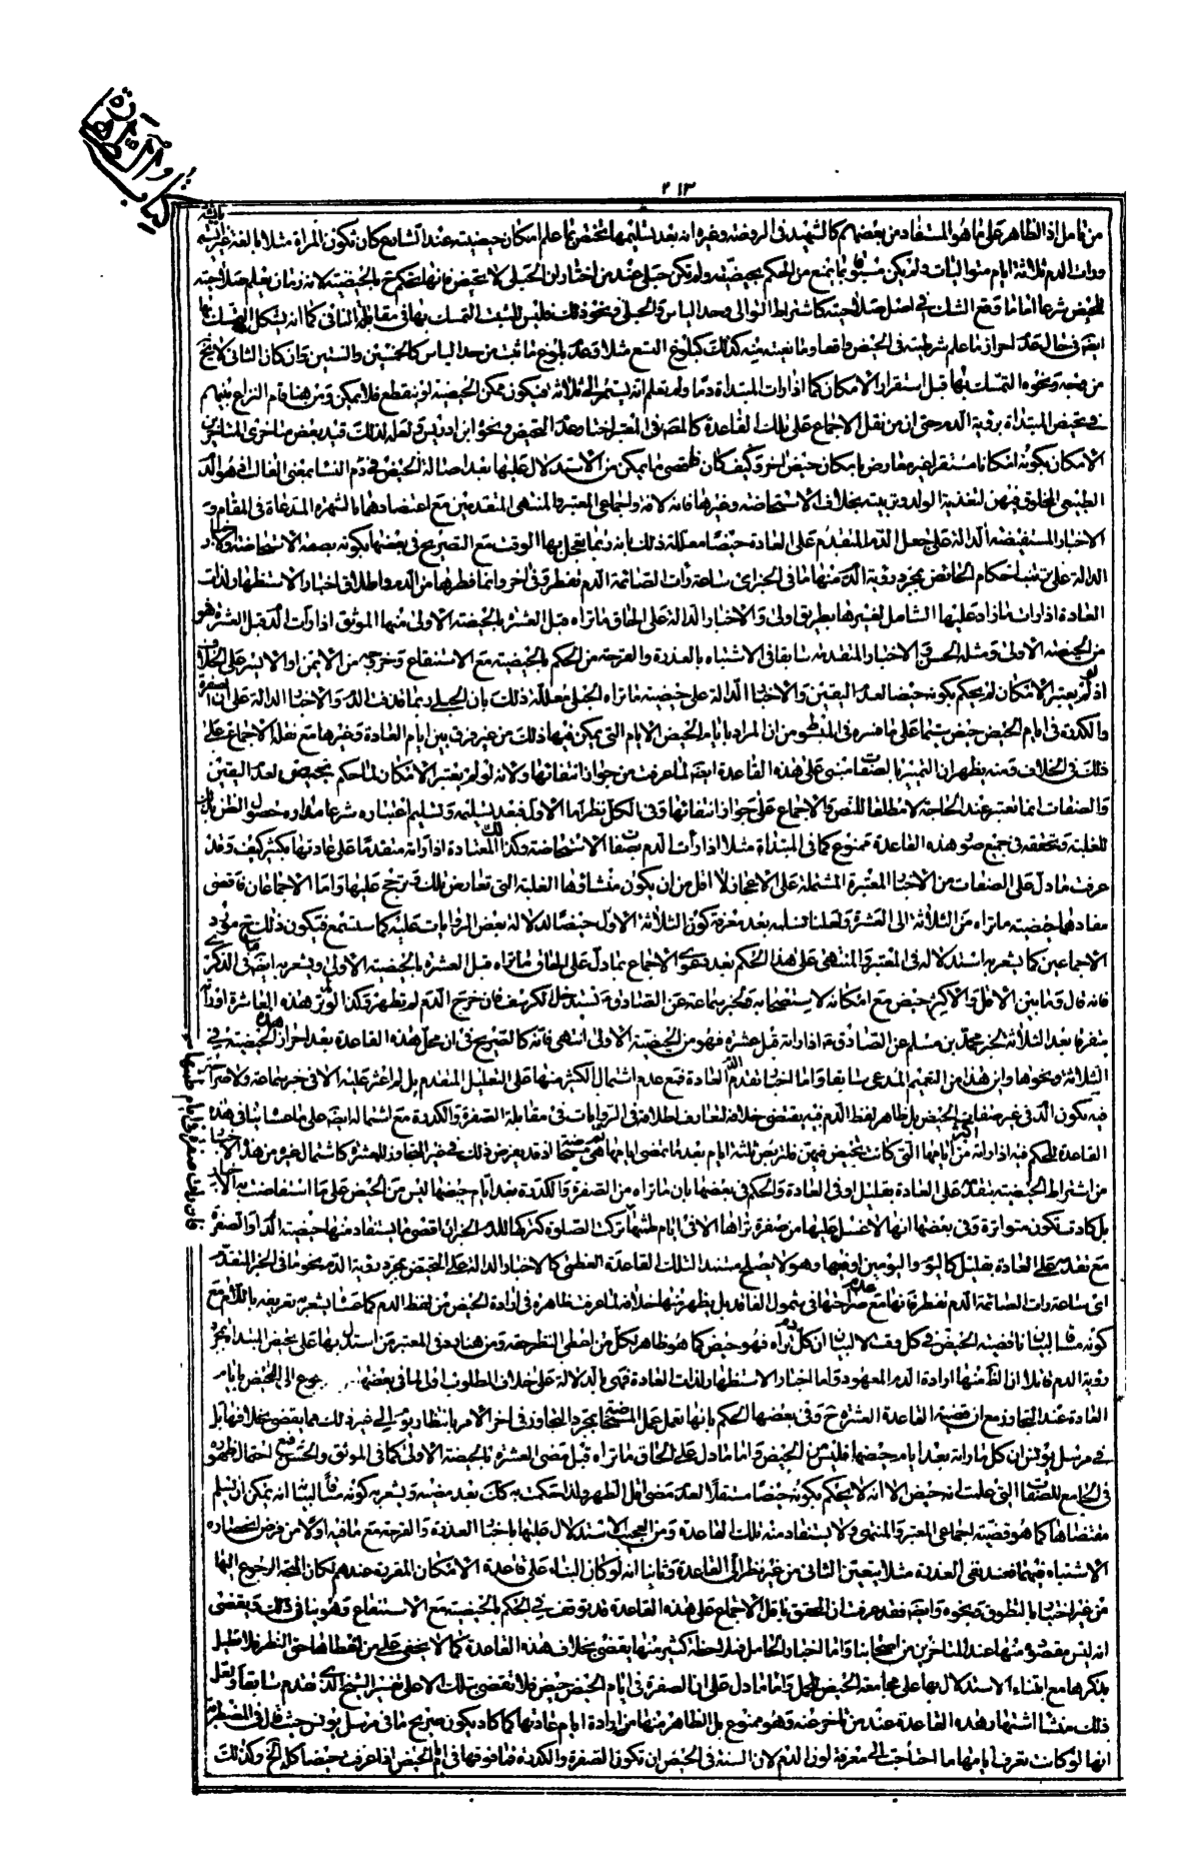 كتاب الطهارة
٢١٣
من تأمل اذ الظاهر على ما هو المستفاد من بعضهم كالشهيد في الروضة وغيره انه بعد تسليمها تختص بما علم امكان حيضيته عند الشارع كان تكون المرأة مثلا بالغة غير يائسة
ورات الدم ثلاثة ايام متواليات ولم يكن مسبوقا بما يمنع من الحكم بحيضيته ولم تكن حبلى عند من اختار ان الحبلى لا تحيض فانها يحكم ح بالحيضية لانه زمان يعلم صلاحيته
للحيض شرعا اما ما وقع الشك في اصل صلاحيته كاشتراط التوالي وحد الياس والحبلى ونحو ذلك فليس للمثبت التمسك بها في مقابلة النافي كما انه يشكل التمسك بها
ايضا في حال عدم احراز ما علم شرطيته في الحيض واقعا ومانعيته منه كذلك كبلوغ التسع مثلا وعدم بلوغ ما ثبت من حد الياس كالخمسين والستين وان كان الثاني لا يخ
من وجه ونحوه التمسك بها قبل استقرار الامكان كما اذا رات المبتداة دما ولم تعلم انه يستمر الى ثلاثة فيكون ممكن الحيضية او ينقطع فلا يمكن ومن هنا قام النزاع بينهم
في تحيض المبتداة برؤية الدم حتى ان من نقل الاجماع على تلك القاعدة كالمصنف في المعتبر اختار عدم التحيض ونحوه ابن ادريس ولعله لذلك قيد بعض متاخري المتاخرين
الامكان بكونه امكانا مستقرا غير معارض بامكان حيض اخر وكيف كان فاقصى ما يمكن من الاستدلال عليها بعد اصالة الحيض في دم النساء بمعنى الغالب اذ هو الدم
الطبيعي المخلوق فيهن لتغذية الولد وتربيته بخلاف الاستحاضة وغيرها فانه لآفة واجماعي المعتبر والمنتهى المتقدمين مع اعتضادهما بالشهرة المدعاة في المقام و
الاخبار المستفيضة الدالة على جعل الدم المتقدم على العادة حيضا معللة ذلك بانه ربما يعجل بها الوقت مع التصريح في بعضها بكونه بصفة الاستحاضة والاخبار
الدالة على ترتب احكام الحائض بمجرد رؤية الدم منها ما في الخبر اي ساعة رات الصائمة الدم تفطر وفي اخر وانما فطرها من الدم واطلاق اخبار الاستظهار لذات
العادة اذا رات ما زاد عليها الشامل لغيرها بطريق اولى والاخبار الدالة على الحاق ما تراه قبل العشرة بالحيضة الاولى منها الموثق اذا رات الدم قبل العشرة فهو
من الحيضة الاولى ومثله الحسن والاخبار المتقدمة سابقا في الاشتباه بالعذرة والقرحة من الحكم بالحيضية مع الاستنقاع وخروجه من الايمن او الايسر على الخلاف
اذ لو لم يعتبر الامكان لم يحكم بكونه حيضا لعدم اليقين والاخبار الدالة على حيضية ما تراه الحبلى معللة ذلك بان الحبلى ربما قذفت الدم والاخبار الدالة على ان الصفرة
والكدرة في ايام الحيض حيض سيما على ما فسره في المبسوط من ان المراد بايام الحيض الايام التي يمكن فيها ذلك من غير فرق بين ايام العادة وغيرها مع نقله الاجماع على
ذلك في الخلاف ومنه يظهر ان التمييز بالصفات مبني على هذه القاعدة ايضا لما عرفت من جواز انتفائها ولانه لو لم يعتبر الامكان لما حكم بحيض لعدم اليقين
والصفات انما تعتبر عند الحاجة لا مطلقا للنص والاجماع على جواز انتفائها وفي الكل نظر اما الاول فبعد تسليمه وتسليم اعتباره شرعا مداره حصول الظن
للغلبة وتحققه في جميع صور هذه القاعدة ممنوع كما في المبتداة مثلا اذا رات الدم بصفات الاستحاضة وكذا المعتادة اذا راته متقدما على عادتها بكثير كيف وقد
عرفت ما دل على الصفات من الاخبار المعتبرة المشتملة على الاعجاز ولا اقل من ان يكون منشاؤها الغلبة التي تعارض تلك وترجح عليها واما الاجماعان فاقصى
مفادهما حيضية ما تراه من الثلاثة الى العشرة ولعلنا نسلمه بعد معرفة كون الثلاثة الاول حيضا لدلالة بعض الروايات عليه كما ستسمع فيكون ذلك ح مورد
الاجماعين كما يشعر به استدلاله في المعتبر والمنتهى على هذا الحكم بعد دعوى الاجماع بما دل على الحاق ما تراه قبل العشرة بالحيضة الاولى ويشعر به ايضا ما في الذكرى
فانه قال وما بين الاقل والاكثر حيض مع امكانه لاستصحابه ولخبر سماعة عن الصادق ع تستدخل الكرسف فان خرج الدم لم تطهر وكذا لو تميز هذه العاشرة او رات
متفرقا بعد الثلاثة لخبر محمد بن مسلم عن الصادق ع اذا راته قبل عشرة فهو من الحيضة الاولى انتهى فانه كالصريح في ان محل هذه القاعدة بعد احراز الحيضية في
الثلاثة ونحوها واين هذا من التعميم المدعى سابقا واما اخبار تقدم الدم العادة فمع عدم اشتمال الكثير منها على التعليل المتقدم بل لم اعثر عليه الا في خبر سماعة ولا صراحة
فيه بكون الدم في غير صفات الحيض بل ظاهر لفظ الدم فيه يقتضي خلافه لتعارف اطلاقه في الروايات في مقابلة الصفرة والكدرة مع اشتماله ايضا على ما عساه ينافي هذه
القاعدة للحكم فيه اذا راته اكثر من ايامها التي كانت تحيض فيهن فلتربص ثلثة ايام بعد ما تمضي ايامها هي مستحاضة اذ قد يعرض ذلك في غير المتجاوز للعشرة كاشتمال غيره من هذه الاخبار
من اشتراط الحيضية بتقدمه على العادة بقليل او في العادة والحكم في بعضها بان ما تراه من الصفرة والكدرة بعد ايام حيضها ليس من الحيض على ما استفاضت به الاخبار
بل كادت تكون متواترة وفي بعضها انها لا غسل عليها من صفرة تراها الا في ايام طمثها تركت الصلوة كتركها للدم الخ ان اقصى ما يستفاد منها حيضية الدم او الصفرة
مع تقدمه على العادة بقليل كاليوم واليومين او فيها وهو لا يصلح مستندا لتلك القاعدة العظمى كالاخبار الدالة على التحيض بمجرد رؤية الدم نحو ما في الخبر المتقدم
اي ساعة رات الصائمة الدم تفطر فانها مع عدم صراحتها في شمول الفاقد بل يظهر منها خلافه لما عرفت ظاهرة في ارادة الحيض من لفظ الدم كما عساه يشعر به تعريفه باللام مع
كونه مساقا لبيان ناقضية الحيض في كل وقت لا لبيان ان كل دم تراه فهو حيض كما هو ظاهر لكل من اعطى النظر حقه ومن هنا رد في المعتبر من استدل بها على تحيض المبتداة بمجرد
رؤية الدم قائلا ان الظاهر منها ارادة الدم المعهود واما اخبار الاستظهار لذات العادة فهي بالدلالة على خلاف المطلوب اولى لما في بعضها رجوع الى التحيض بايام
العادة عند التجاوز مع ان قضية القاعدة العشرة ح وفي بعضها الحكم بانها تعمل عمل المستحاضة بمجرد التجاوز في اخر الامر بانتظار يوم الى غير ذلك مما يقضي بخلافها بل
في مرسل يونس ان كل ما راته بعد ايام حيضها فليس من الحيض واما ما دل على الحاق ما تراه قبل مضي العشرة بالحيضة الاولى كما في الموثق والحسن فمع احتمال ظهوره
في الجامع للصفات التي علمت انه حيض الا انه لا يحكم بكونه حيضا مستقلا لعدم مضي اقل الطهر ولذا حكمت به كذلك بعد مضيه ويشعر به كونه مساقا لبيانه يمكن ان نسلم
مقتضاها كما هو قضية اجماعي المعتبر والمنتهى ولا يستفاد منه تلك القاعدة ومن العجيب الاستدلال عليها باخبار العذرة والقرحة مع ما فيه اولا من فرض انحصاره
الاشتباه فيهما فعند نفي العذرة مثلا يتعين الثاني من غير نظر الى القاعدة وثانيا انه لو كان البناء على قاعدة الامكان المقررة عندهم لكان المتجه الرجوع اليها
من غير اختبار بالتطوق ونحوه وايضا فقد عرفت ان المحقق ناقل الاجماع على هذه القاعدة قد توقف في الحكم بالحيضية مع الاستنقاع وهو ينافي ذلك ويقضي
انه ليس مفروغا منها عند المتاخرين من اصحابنا واما اخبار الحامل فملاحظة كثير منها يقضي بخلاف هذه القاعدة كما لا يخفى على من اعطاها حق النظر فلا نطيل
بذكرها مع ابتناء الاستدلال بها على مجامعة الحيض للحمل واما ما دل على ان الصفرة في ايام الحيض حيض فلا تقضي بتلك الا على تفسير الشيخ الذي تقدم سابقا ولعل
ذلك منشأ اشتهار هذه القاعدة عند من تاخر عنه وهو ممنوع بل الظاهر منها من ارادة ايام عادتها كما كاد يكون صريح ما في مرسل يونس حيث قال في المضطربة
انها لو كانت تعرف ايامها ما احتاجت الى معرفة لون الدم لان السنة في الحيض ان تكون الصفرة والكدرة فما فوقها في ايام الحيض اذا عرفت حيضا كله الخ وكذلك
فان رات صفرة في ايام طمثها